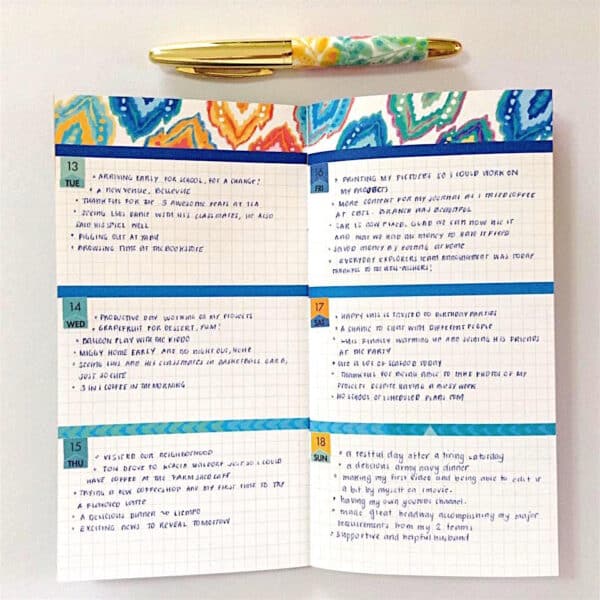 13
TUE
• ARRIVING EARLY FOR SCHOOL, FOR A CHANGE!
• A NEW VENUE, BELLEVUE
• THANKFUL FOR THE 3 AWESOME YEARS AT
• SEEING LUIS DANCE WITH HIS CLASSMATES, HE ALSO
SAID HIS SPIEL WELL
• PIGGING OUT AT YABU
• BROWSING TIME AT THE BOOKSTORE
14
WED
• PRODUCTIVE DAY WORKING ON MY PROJECTS
• GRAPEFRUIT FOR DESSERT, YUM!
• BALLOON PLAY WITH THE KIDDO
• HOME EARLY AND NO NIGHT OUT,
• SEEING LUIS AND HIS CLASSMATES IN BASKETBALL GARB,
JUST SO CUTE
• 3 IN 1 COFFEE IN THE MORNING
15
THU
• VISITED OUR NEIGHBORHOOD
• TON DROVE TO ACACIA WALDORF JUST SO I COULD
HAVE COFFEE AT THE FARMSHED CAFE
• TRYING A NEW COFFEESHOP AND MY FIRST TIME TO TRY
A LATTE
• A DELICIOUS DINNER LIEMPO
• EXCITING NEWS TO REVEAL TOMORROW
16
FRI
• PRINTING MY PICTURES SO I COULD WORK ON
MY PROJECTS
• MORE CONTENT FOR MY JOURNAL AS I TRIED COFFEE
AT BRANCH WAS BEAUTIFUL
• CAR IS NOW FIXED. GLAD WE CAN NOW USE IT
AND THAT WE HAD THE MONEY TO HAVE IT FIXED
• SAVED MONEY BY EATING AT HOME
• EVERYDAY EXPLORERS TEAM ANNOUNCEMENT WAS TODAY
THANKFUL TO THE WELL-WISHERS!
17
SAT
• HAPPY LUIS IS INVITED TO BIRTHDAY PARTIES
• A CHANCE TO CHAT WITH DIFFERENT PEOPLE
• LUIS FINALLY WARMING UP AND JOINING HIS FRIENDS
AT THE PARTY
• ATE A LOT OF SEAFOOD TODAY
• THANKFUL FOR BEING ABLE TO TAKE PHOTOS OF MY
PROJECTS DESPITE HAVING A BUSY WEEK
• NO SCHOOL OR SCHEDULED PLANS
18
SUN
• a restful day after a tiring saturday
• a delicious army navy dinner
• making my first video and being able to edit it
a bit by myself on imovie.
• having my own youtube channel.
• made great headway accomplishing my major
requirements from my 2 teams
• supportive and helpful husband